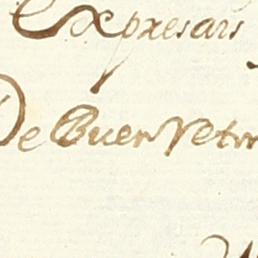 Expresais
De Buen Retir